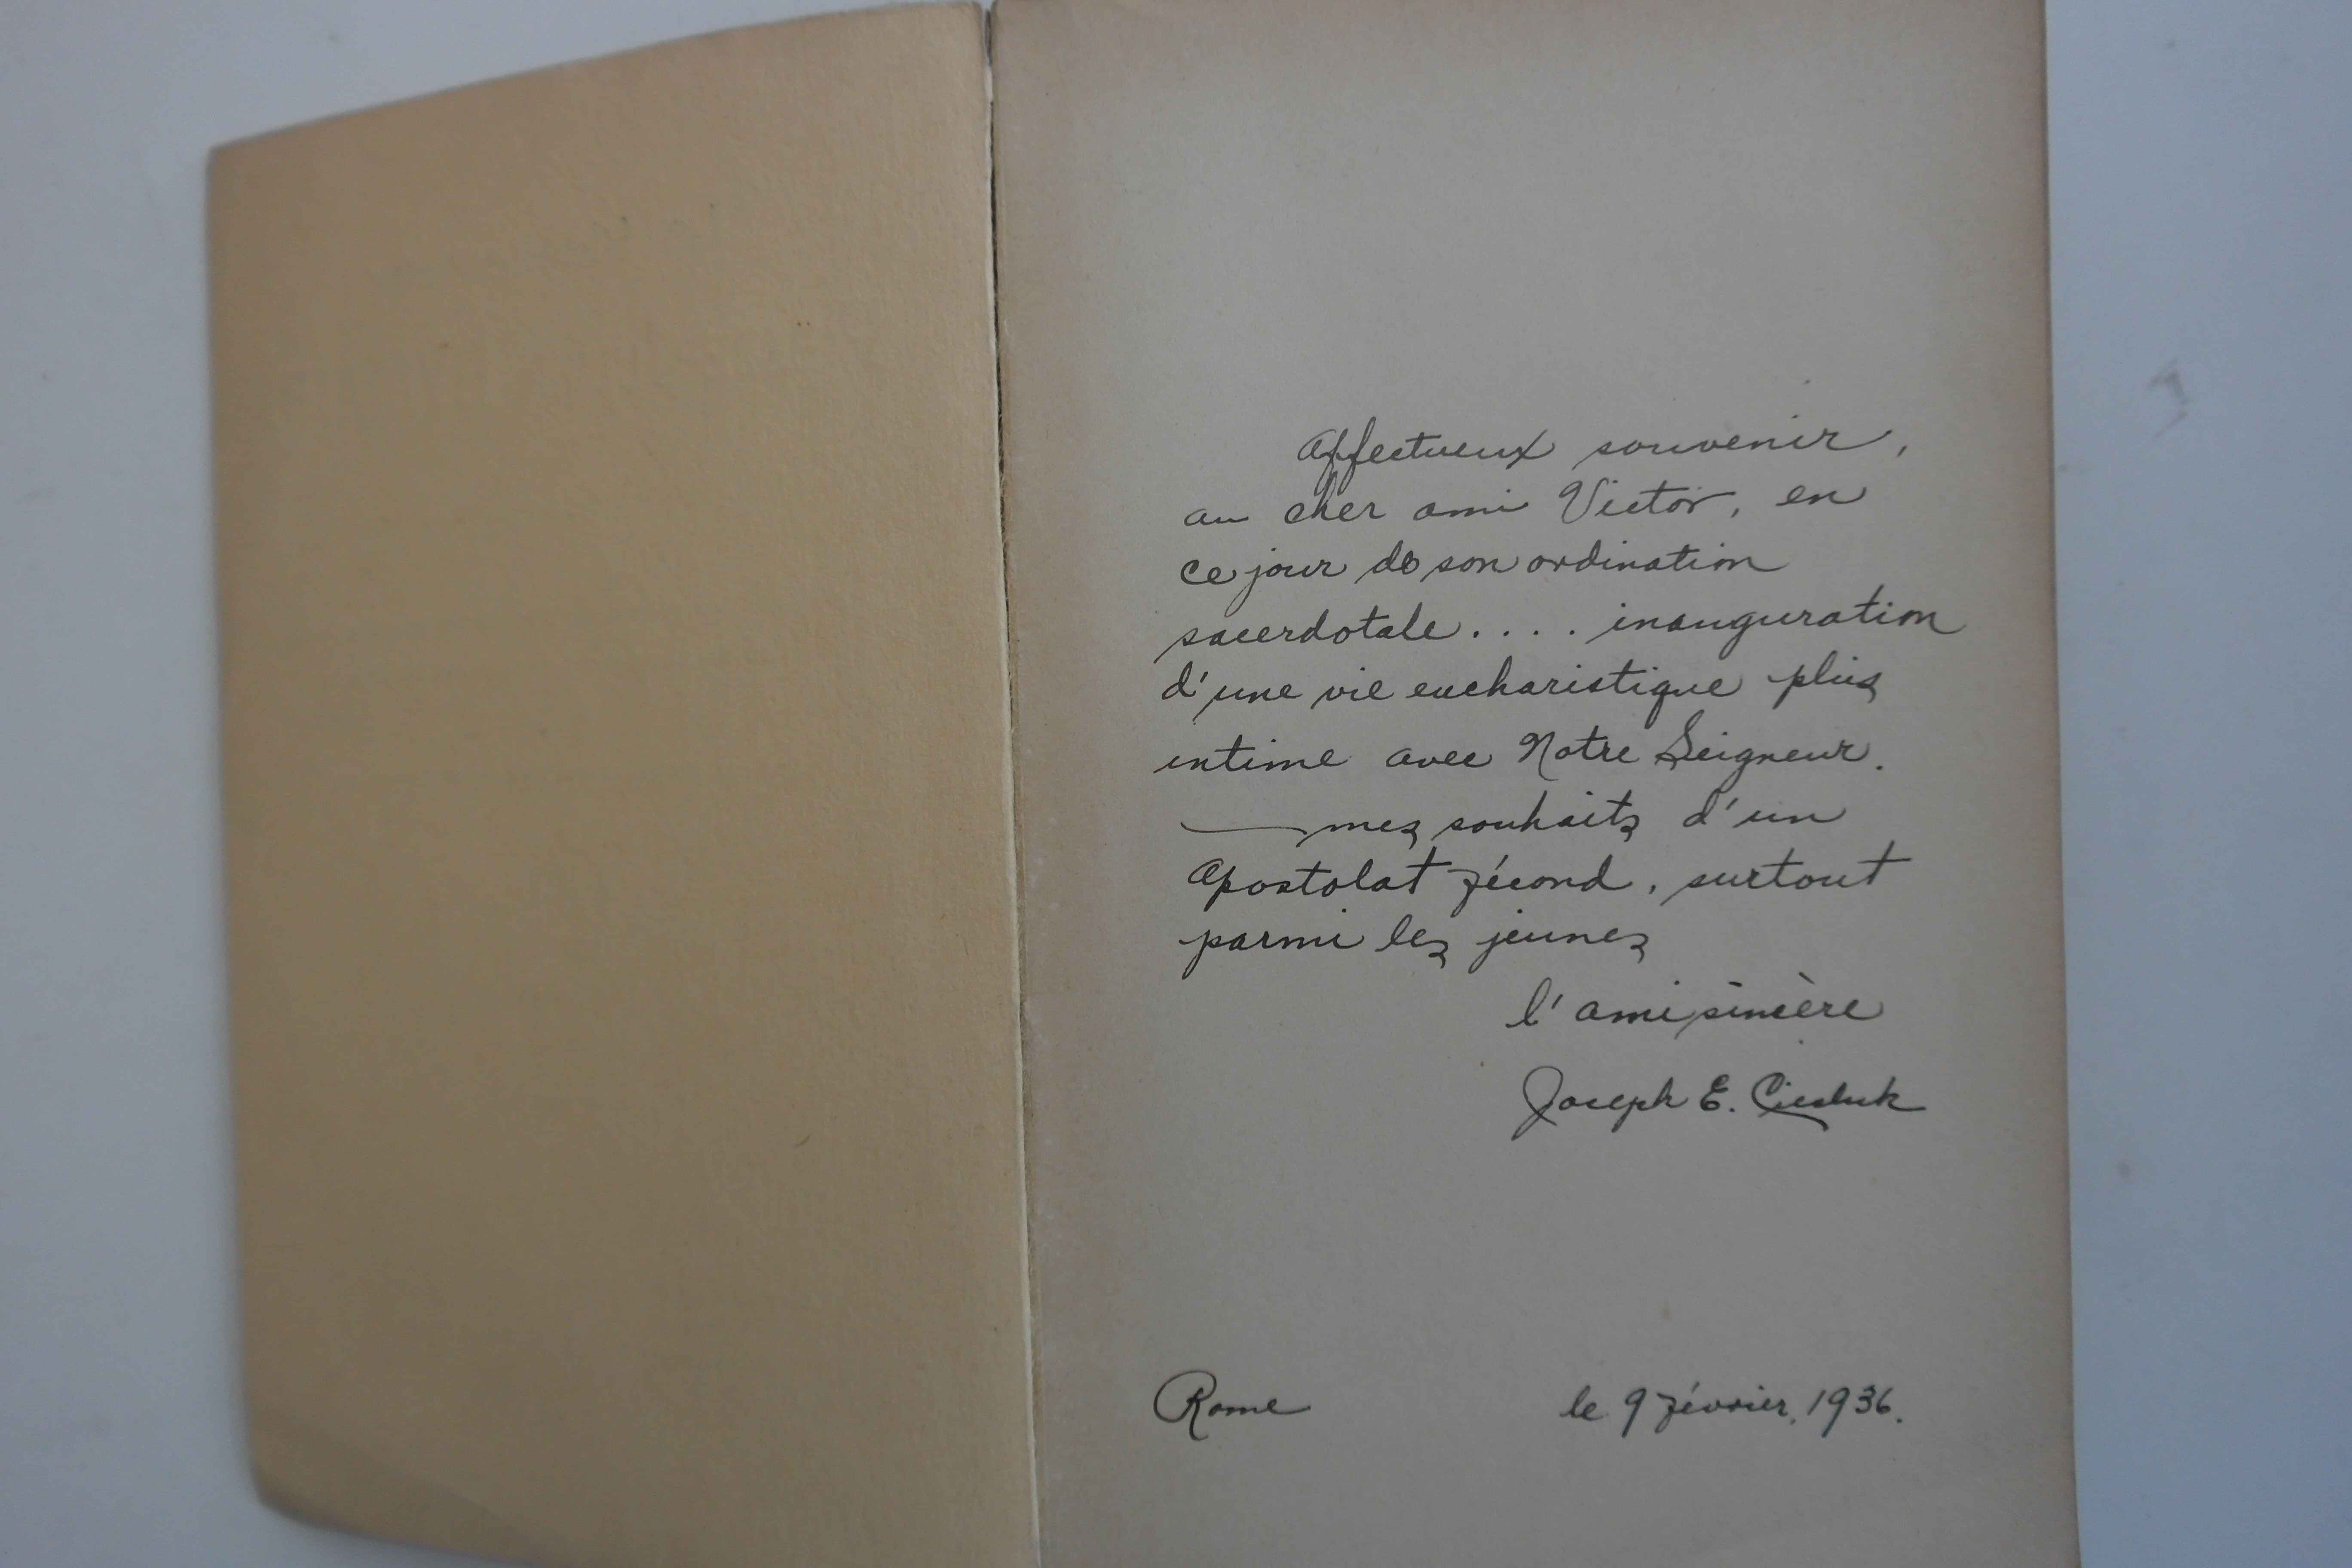 Affectueux souvenir,
au cher ami Victor, en
ce jour de son ordination
sacerdotale.... inauguration
d'une vie eucharistique plus
intime avec Notre Seigneur.
— mes souhaits d'un
Apostolat fécond, surtout
parmi les jeunes
l'ami sincère
Joseph E.
Rome le 9 février, 1936.